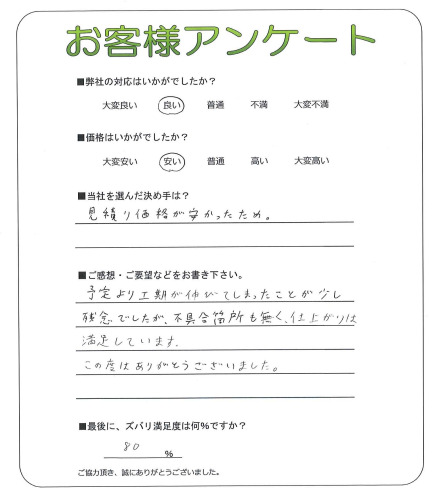 お客様アンケート
■弊社の対応はいかがでしたか？
大変良い 良い 普通 不満 大変不満
■価格はいかがでしたか？
大変安い 安い 普通 高い 大変高い
■当社を選んだ決め手は？
見積り価格が安かったため。
■ご感想・ご要望などをお書き下さい。
予定より工期が伸びてしまったことが少し
残念でしたが、不具合箇所も無く、仕上がりは
満足しています。
この度はありがとうございました。
■最後に、ズバリ満足度は何%ですか？
80 %
ご協力頂き、誠にありがとうございました。